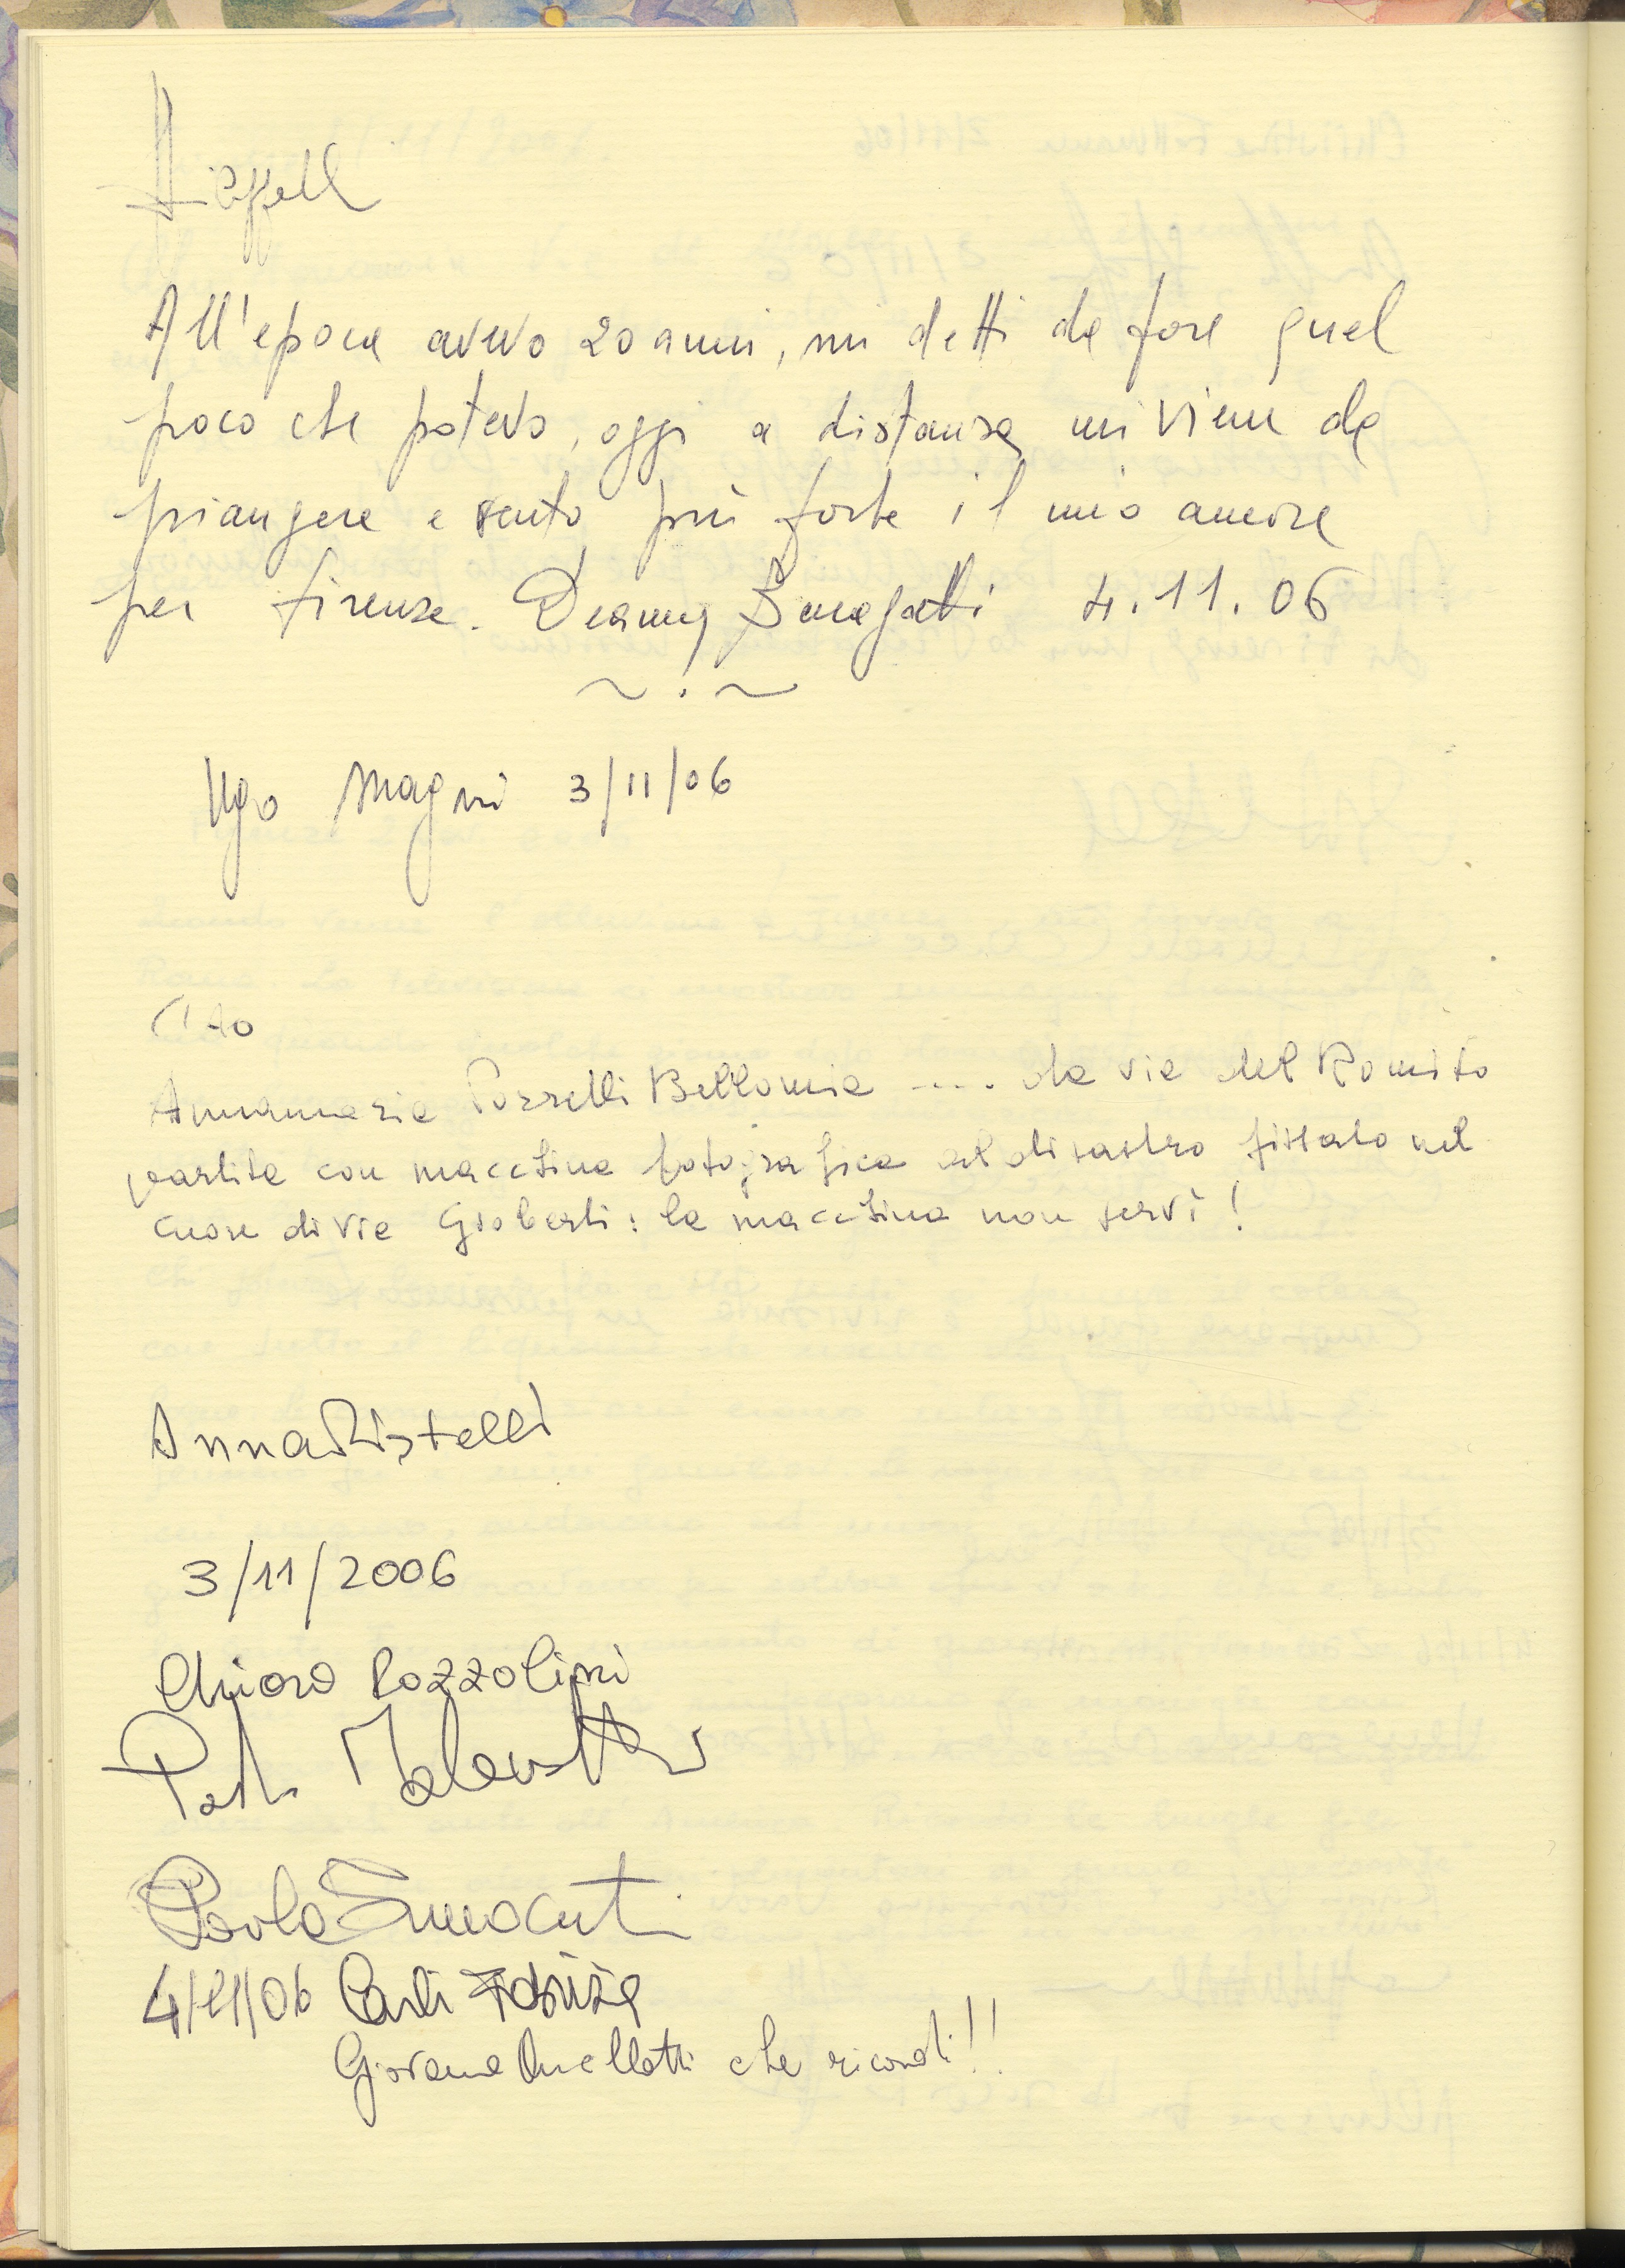 All'epoca avevo 20 anni, mi detti da fare quel
poco che potevo, oggi a distanza mi viene da
piangere e sento più forte il mio amore
per Firenze. Deanna 4.11.06
~ . ~
Ugo Magni 3/11/06
Ciao
Annamaria Porrelli Bellomia ..... da via del Romito
partita con macchina fotografica al disastro fissato nel
cuore di via Gioberti: la macchina non servì!
Anna Ristelli
3/11/2006
Chiara Pozzolini
Paolo
Paola
4/11/06 Carli Fabrizia
Giovanna che ricordi!!